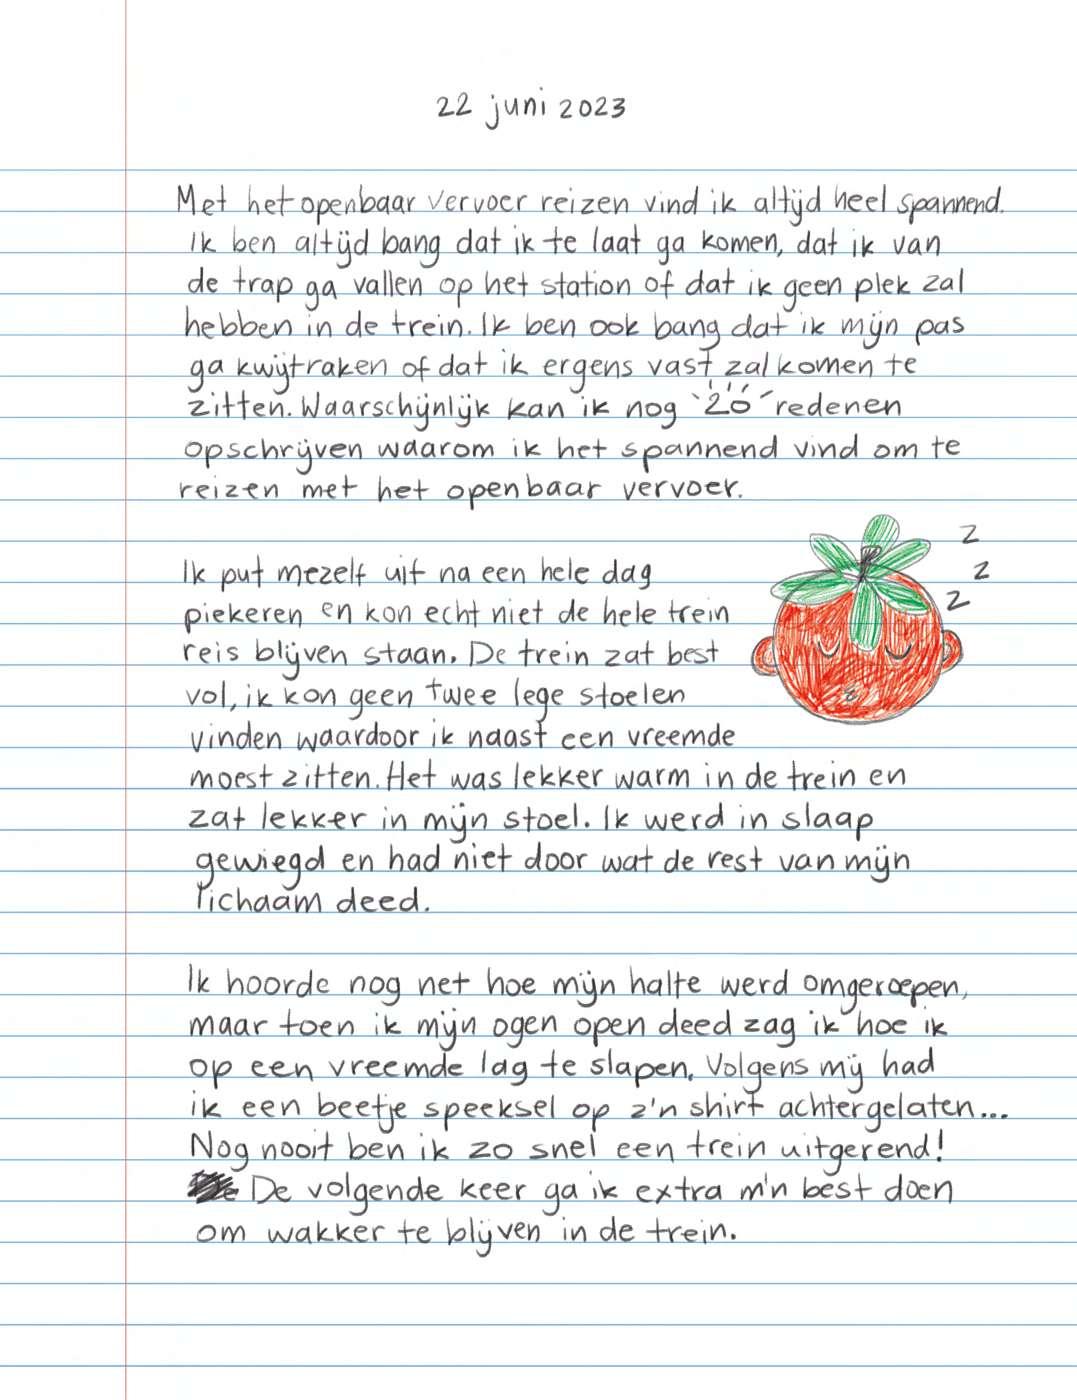 22 juni 2023
Met het openbaar vervoer reizen vind ik altijd heel spannend.
Ik ben altijd bang dat ik te laat ga komen, dat ik van
de trap ga vallen op het station of dat ik geen plek zal
hebben in de trein. Ik ben ook bang dat ik mijn pas
ga kwijtraken of dat ik ergens vast zal komen te
zitten. Waarschijnlijk kan ik nog 20 redenen
opschrijven waarom ik het spannend vind om te
reizen met het openbaar vervoer.
Ik put mezelf uit na een hele dag
piekeren en kon echt niet de hele trein
reis blijven staan. De trein zat best
vol, ik kon geen twee lege stoelen
vinden waardoor ik naast een vreemde
moest zitten. Het was lekker warm in de trein en
zat lekker in mijn stoel. Ik werd in slaap
gewiegd en had niet door wat de rest van mijn
lichaam deed.
z
z
z
Ik hoorde nog net hoe mijn halte werd omgeroepen,
maar toen ik mijn ogen open deed zag ik hoe ik
op een vreemde lag te slapen. Volgens mij had
ik een beetje speeksel op z'n shirt achtergelaten...
Nog nooit ben ik zo snel een trein uitgerend!
De volgende keer ga ik extra m'n best doen
om wakker te blijven in de trein.